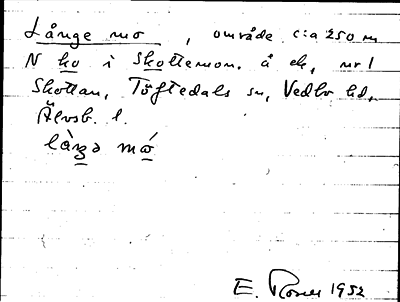 Långe mo, område c:a 250 m
N ko i Skottemon. å ek, nr 1
Skottan, Töftedals sn, Vedbo hd,
Älvsb. l.
làŋə mó
E. 1952